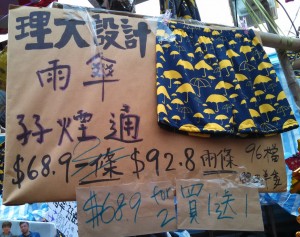 理大設計
雨傘
孖煙通
$68.9一條 $92.8兩條
$68.9 for 2 買1送1